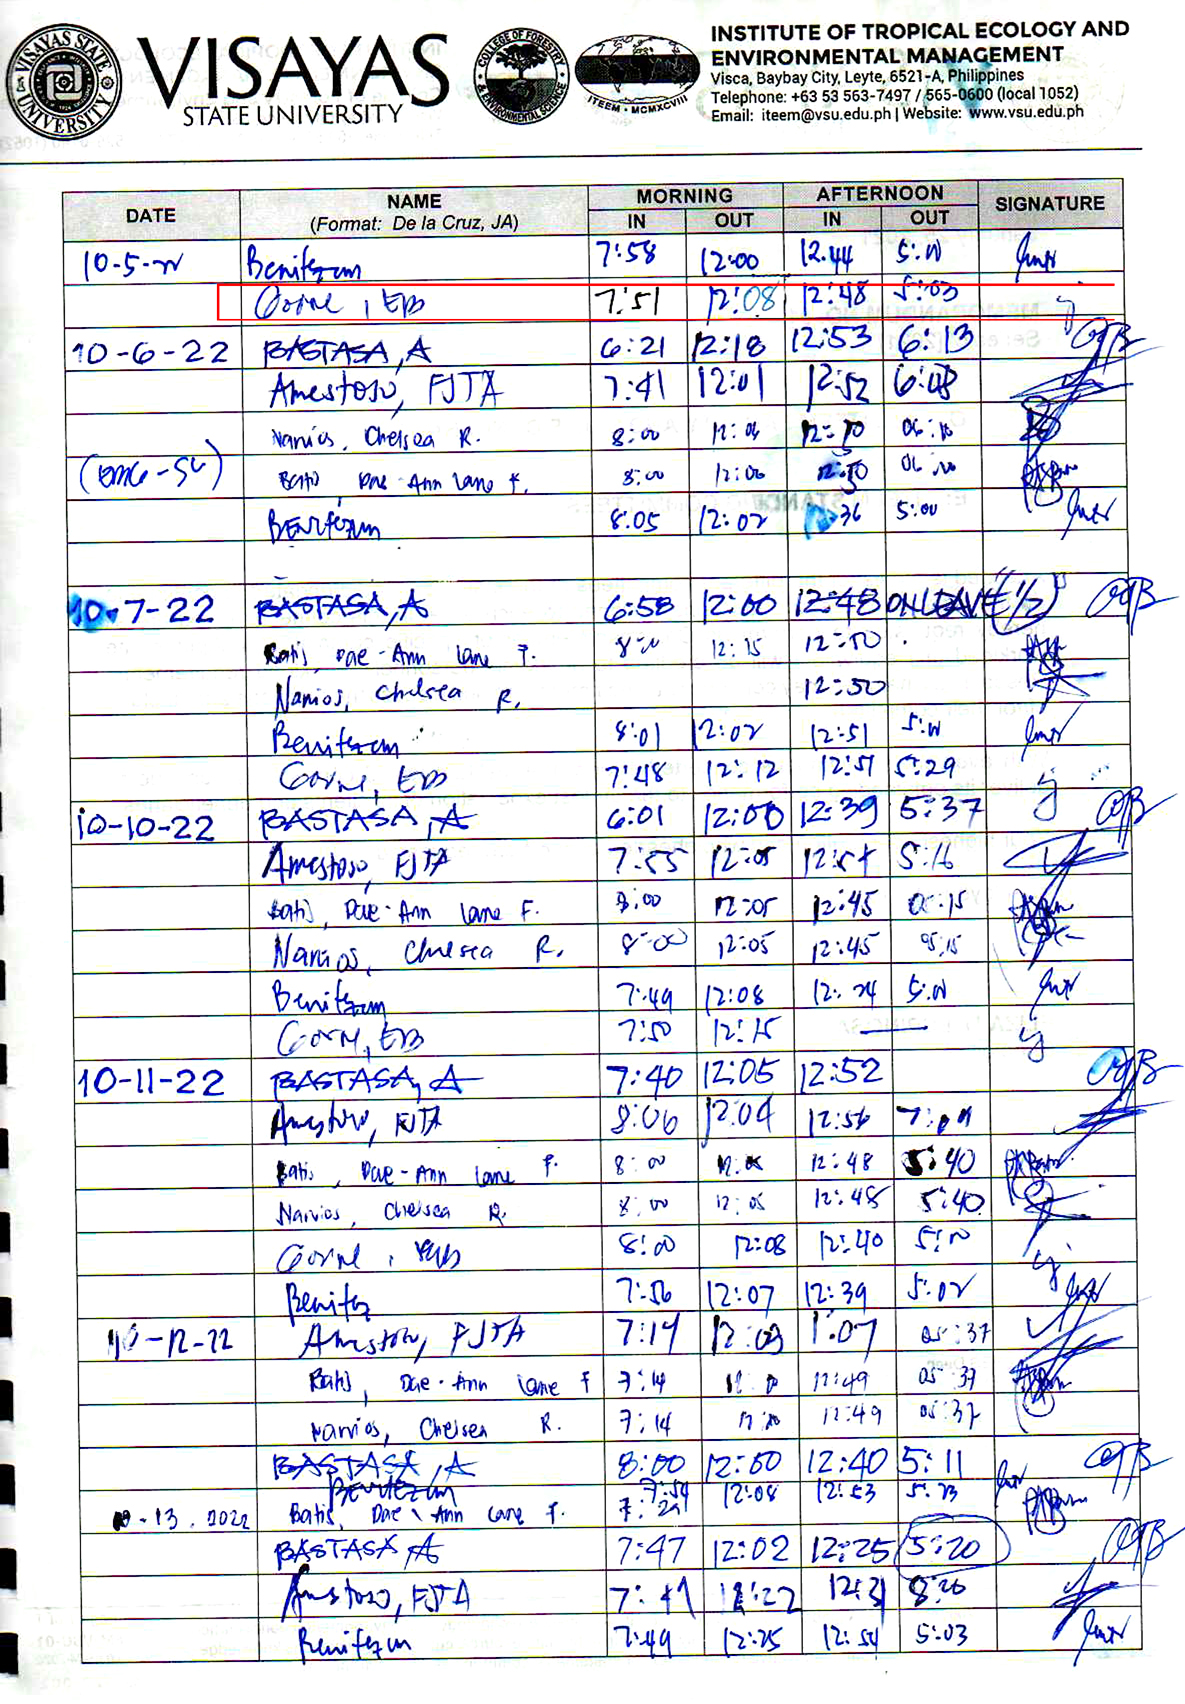 VISAYAS
STATE UNIVERSITY
VISAYAS STATE UNIVERSITY
COLLEGE OF FORESTRY & ENVIRONMENTAL SCIENCE
ITEEM - MCMXCVIII
INSTITUTE OF TROPICAL ECOLOGY AND
ENVIRONMENTAL MANAGEMENT
Visca, Baybay City, Leyte, 6521-A, Philippines
Telephone: +63 53 563-7497 / 565-0600 (local 1052)
Email: iteem@vsu.edu.ph | Website: www.vsu.edu.ph
DATE NAME MORNING AFTERNOON SIGNATURE
(Format: De la Cruz, JA) IN OUT IN OUT
10-5-22 Benitezmm 7:58 12:00 12:44 5:00
Gorne, EB 7:51 12:08 12:48 5:03
10-6-22 BASTASA, A 6:21 12:18 12:53 6:13
Amestoso, FJTA 7:41 12:01 12:52 6:08
Narios, Chelsea R. 8:00 12:06 12:50 06:10
Batis, Dae-Ann Lane F. 8:00 12:00 12:50 06:10
Benitezmm 8:05 12:02 36 5:00
10-7-22 BASTASA, A 6:58 12:00 12:48 ON LEAVE (1/2)
Batis, Dae-Ann Lane F. 8:00 12:15 12:50
Narios, Chelsea R. 12:50
Benitezmm 8:01 12:02 12:51 5:00
Gorne, EB 7:48 12:12 12:51 5:29
10-10-22 BASTASA, A 6:01 12:00 12:39 5:37
Amestoso, FJTA 7:55 12:05 12:54 5:16
Batis, Dae-Ann Lane F. 8:00 12:05 12:45 05:15
Narios, Chelsea R. 8:00 12:05 12:45 05:15
Benitezmm 7:49 12:08 12:24 5:00
Gorne, EB 7:50 12:15
10-11-22 BASTASA, A 7:40 12:05 12:52
Amestoso, FJTA 8:06 12:04 12:56
Batis, Dae-Ann Lane F. 8:00 12:48 5:40
Narios, Chelsea R. 8:00 12:05 12:45 5:40
Gorne, EB 8:00 12:08 12:40 5:10
Benitez 7:56 12:07 12:39 5:02
10-12-22 Amestoso, FJTA 7:14 12:03 1:07 05:37
Batis, Dae-Ann Lane F 7:14 12:49 05:37
Narios, Chelsea R. 7:14 12:49 05:37
BASTASA, A 8:00 12:00 12:40 5:11
Benitezmm 7:59 12:08 12:53 5:23
-13.2022 Batis, Dae-Ann Lane F. 7:29
BASTASA, A 7:47 12:02 12:25 5:20
Amestoso, FJTA 7:41 12:22 8:20
Benitezmm 7:49 12:25 12:54 5:03